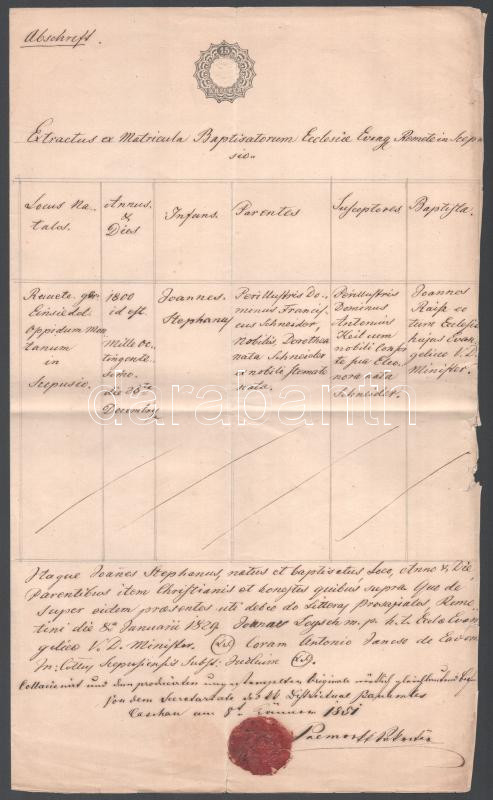 Abschrift.
15
KREUZER
Extractus ex Matricula Baptisatorum Ecclesiæ Evang Remete in Scepu
sio.
Locus Na-
talis.
Annus.
&
Dies
Infans.
Parentes
Susceptores
Baptista.
Remete
Einsiedel
Oppidum Mon
tanum
in
Scepusio.
1800
id est
Mille Oc-
tingente
simo.
die 26ta
Decembris
Joannes.
Stephanus
Perillustris Do-
minus Francis-
cus Schneider,
Nobilis, Dorothea
nata Schneider
e nobili stemate
nata.
Perillustris
Dominus
Antonius
Keil cum
nobili Consor
te sua Eleo-
nora nata
Schneider.
Joannes
Raisz
Ecclesiæ
hujus Evan-
gelicæ V. D.
Minister.
Itaque Joannes Stephanus, natus et baptisatus Loco, Anno & Die
Parentibus item Christianis et honestis quibus supra. Quo de
super eidem præsentes uti debeo do Litteras
die 8a Januarii 1824 Joannes m. p. h. t. Eccl. Evan
gelicæ V. D. Minister. (L.S.) Coram Antonio
In: Cottus Scepusiensis Subst: Judlium (L.S.).
Collationirt und dem producirten ungestempelten Originale gleichlautend
Von dem Secretariate des kk Distrikual
Caschau am 8t Jänner 1851
darabanth